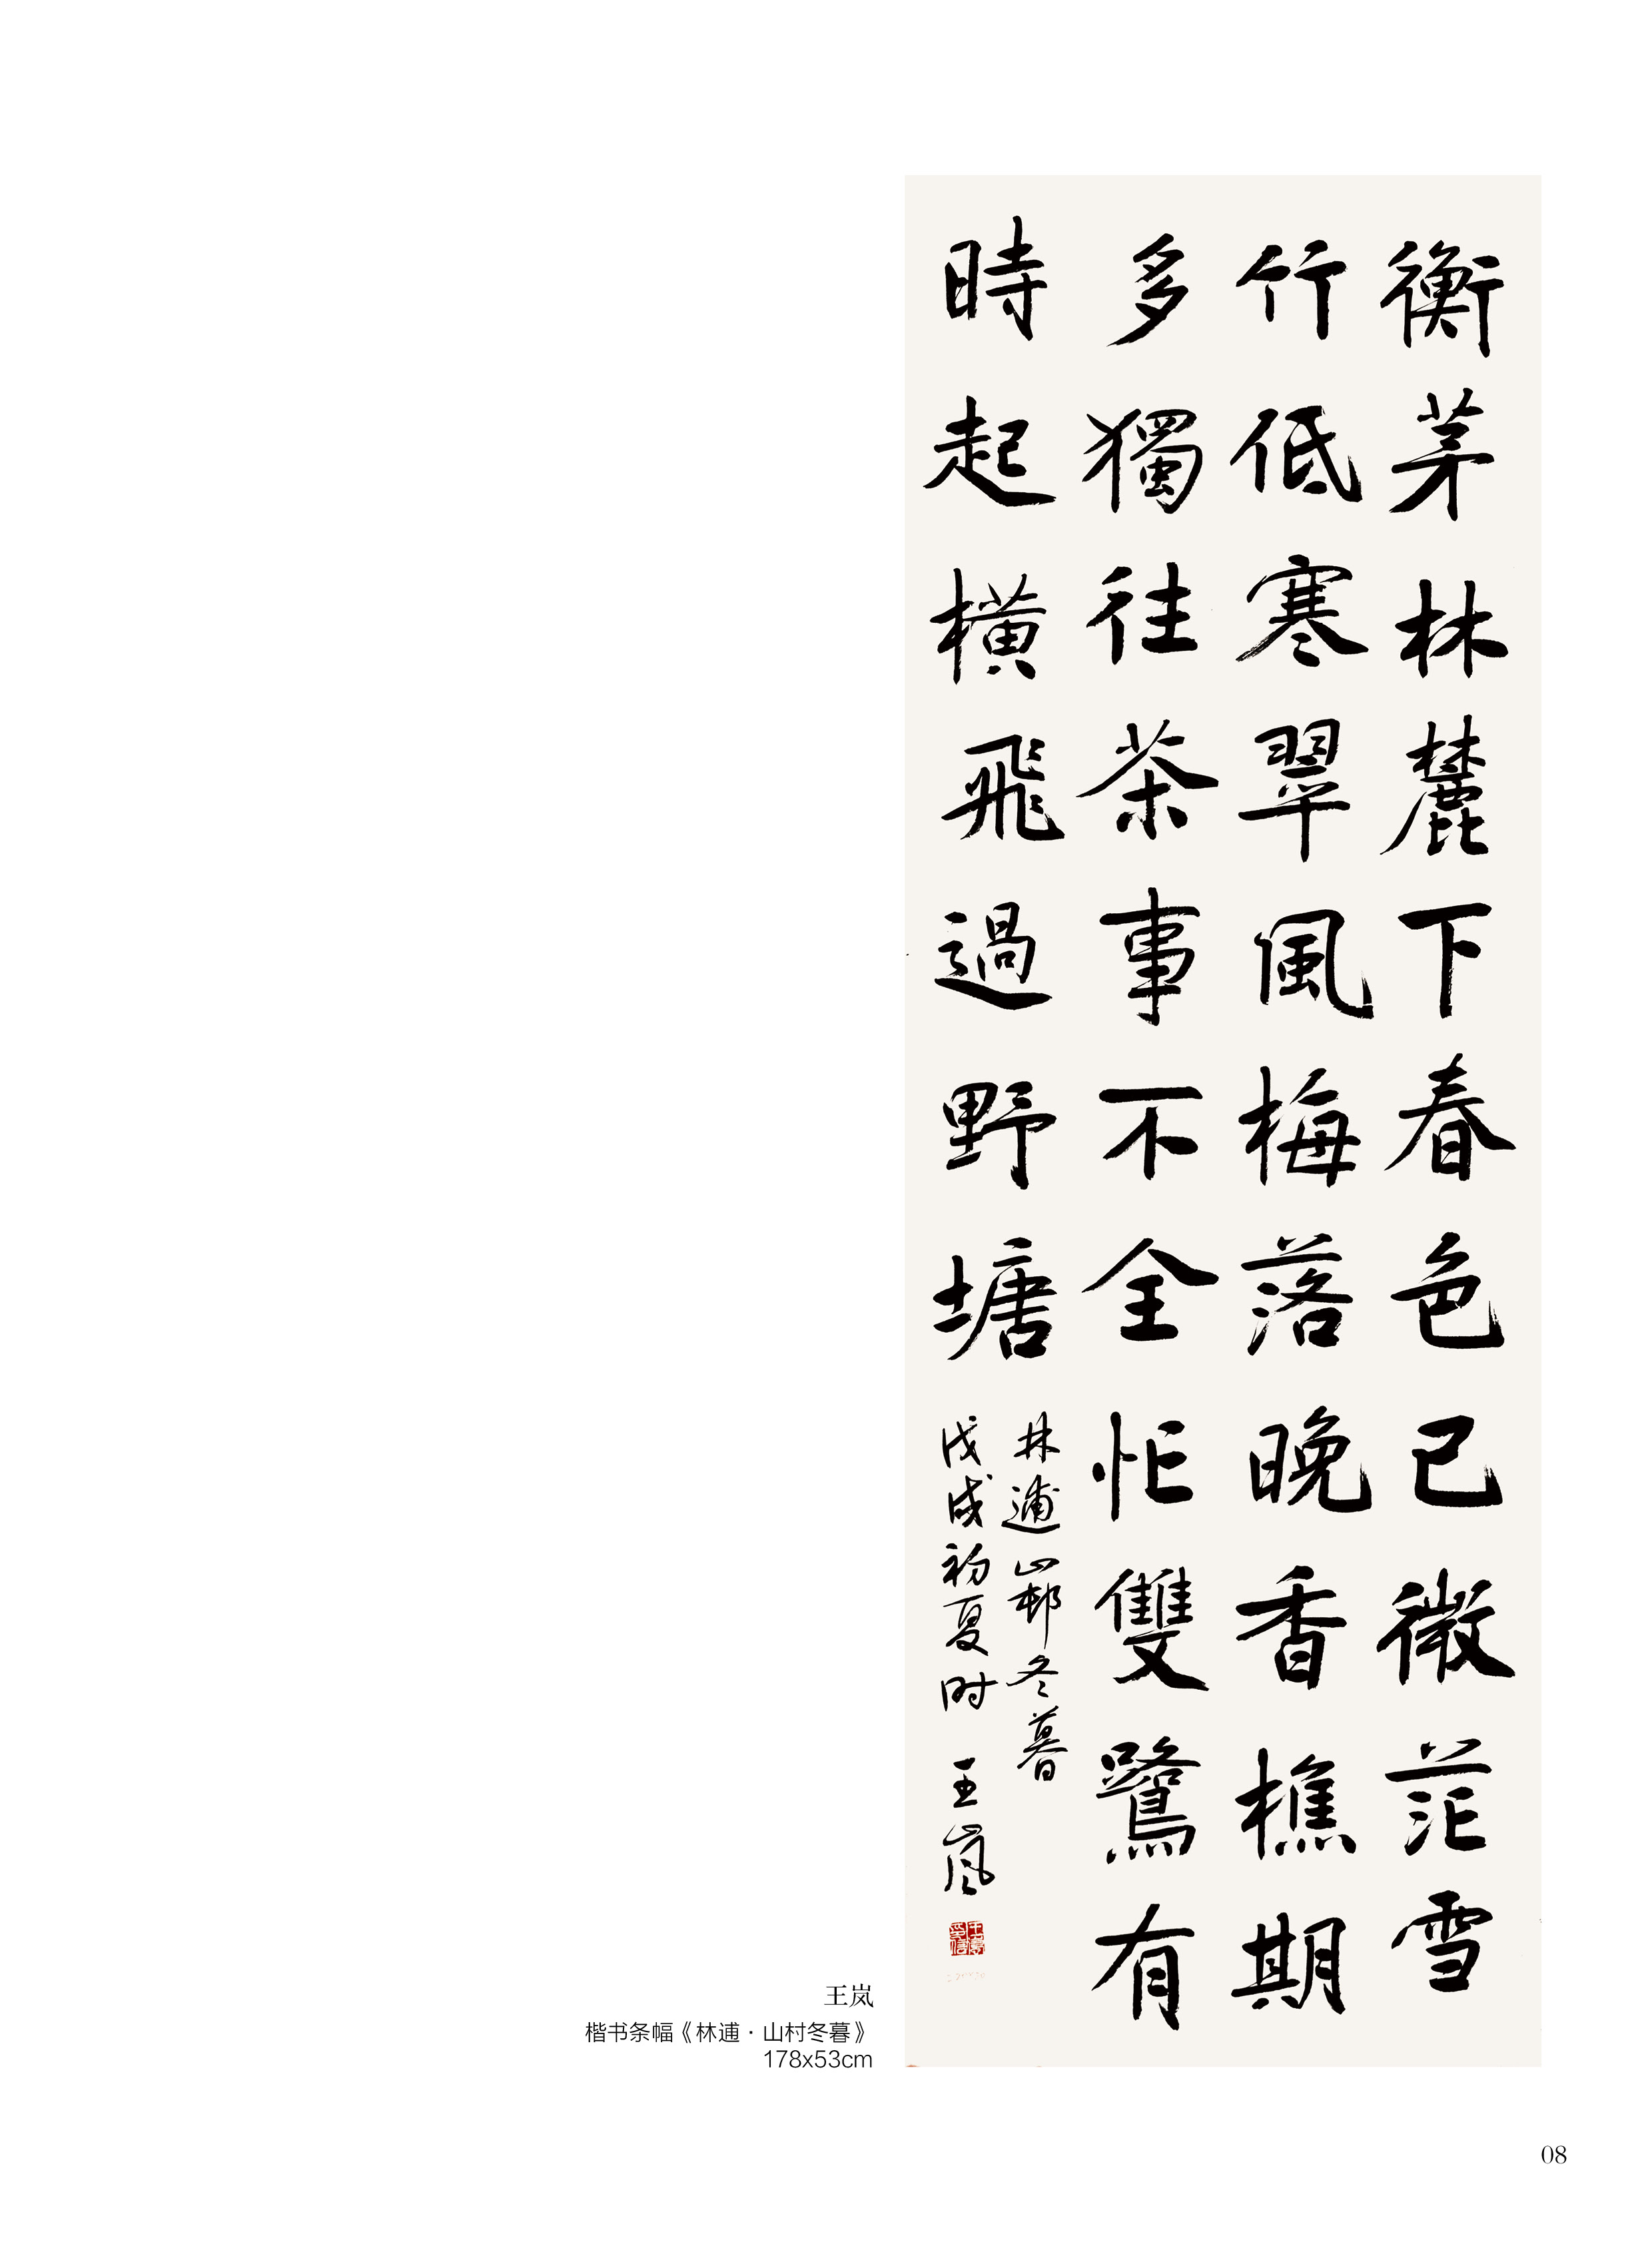 衡茅林麓下春色已微茫雪
竹低寒翠風梅落晚香樵期
多獨往茶事不全忙雙鷺有
時起橫飛過野塘
林逋山邨冬暮
戊戌初夏时 王嵐
王岚
楷书条幅《林逋·山村冬暮》
178x53cm
08